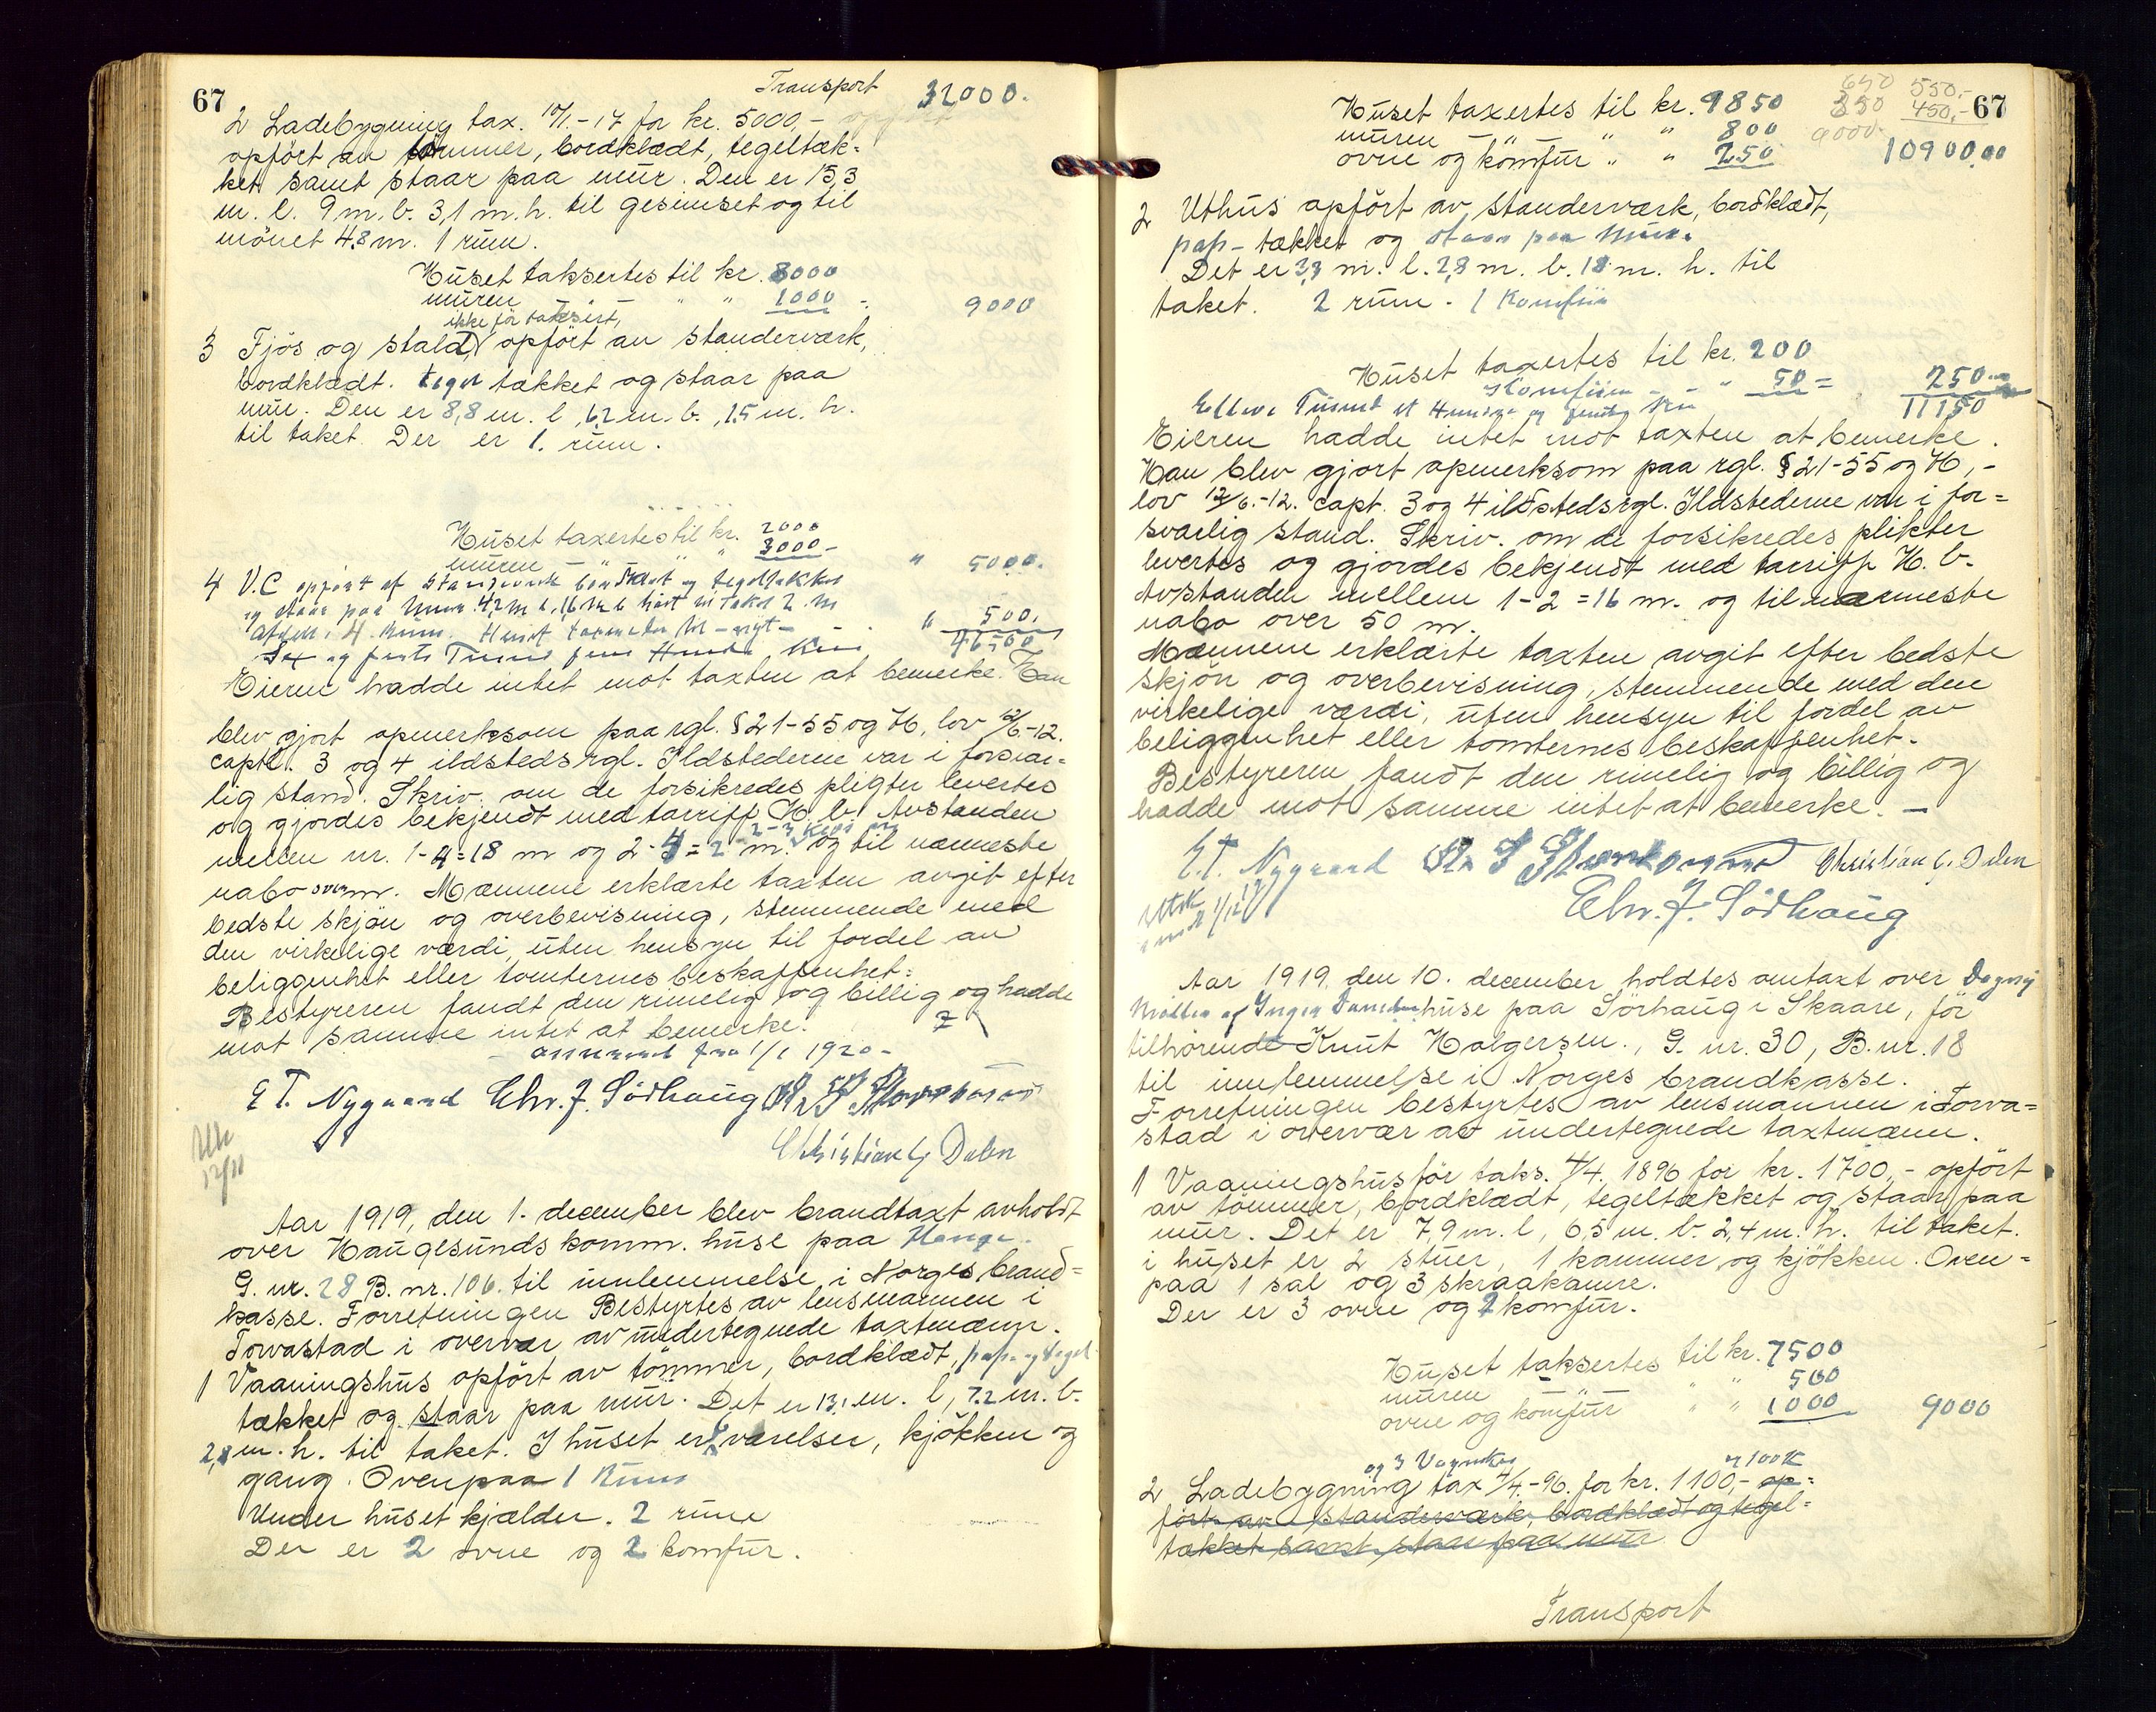 67
Transport 32000.
2 Ladebygning tax. 10/1.-17 for kr. 5000,-
opført au tømmer, bordklædt, tegeltæk=
ket samt staar paa mur. Den er 15,3
m. l. 9 m. b. 3,1 m. h. til gesimset og til
mønet 4,8 m. 1 rum.
Huset taksertes til kr. 8000
muren - " - " " 1000 = 9000
ikke før taksert,
3 Fjøs og stald, opført au standerværk,
bordklædt. tegel tækket og staar paa
mur. Den er 8,8 m. l, 6,2 m. b., 2,5 m. h.
til taket. Der er 1. rum.
Huset taxertes til kr. 2000
muren - " - " " 3000 - " 5000.
4 V.C opført af Standerverk bordklædt og tegeltækket
og staar paa Muur. 4,2 m l, 1,6 m b höit til taket 2. m
4. Rum. Huset taxertes til - nyt - " 500.
46500
Sex og førti Tusind fem Hundre Kr
Eieren hadde intet mot taxten at bemerke. Han
blev gjort opmerksom paa rgl. § 21-55 og 76, lov 12/6-12.
captl. 3 og 4 ildstedsrgl. Ildstederne var i forsvar=
lig stand. Skriv. om de forsikredes pligter levertes
og gjordes bekjendt med tarriff H. b. Avstanden
mellem nr. 1-4=18 m og 2-4=2 m. og til nærmeste
nabo over m. Mænnene erklærte taxten avgit efter
bedste skjøn og overbevisning, stemmende med
den virkelige værdi, uten hensyn til fordel au
beliggenhet eller tomternes beskaffenhet.
Bestyreren fandt den rimelig og billig og hadde
mot samme intet at bemerke.
assurert fra 1/1 1920-
E T. Nygaard Chr. J. Sørhaug
Christian G Dalen
Utk
12/11
Aar 1919, den 1. december blev brandtaxt avholdt
over Haugesunds komm. huse paa Hauge.
G. nr. 28 B. nr. 106. til innlemmelse i Norges brand=
kasse. Forretningen Bestyrtes av lensmannen i
Torvastad i overvær av undertegnede taxtmænn.
1 Vaaningshus opført av tømmer, bordklædt, pap- og tegel
tækket og staar paa mur. Det er 13,1 m. l, 7,2 m. b.
2,8 m. h. til taket. I huset er værelser, kjøkken og
gang. Ovenpaa 1 Rum
Under huset kjælder. 2 rum
Der er 2 ovne og 2 komfur.
650 550,-
350 450,- 67
9000
Huset taxertes til kr. 9850
muren - " - " " 800
ovne og komfur " " 250 10900,00
2 Uthus opført av standerværk, bordklædt,
pap- tækket og staar paa Muur.
Det er 3,3 m. l. 2,8 m. b. 1,8 m. h. til
taket. 2 rum. 1 Komfur
Huset taxertes til kr. 200
Komfuren - - " 50 = 250
Elleve Tusind et Hundre og femti Kr 11150
Eieren hadde intet mot taxten at bemerke.
Han blev gjort opmerksom paa rgl. § 21-55 og 76,-
lov 12/6.-12. capt. 3 og 4 ildstedsrgl. Ildstederne var i for=
svarlig stand. Skriv. om de forsikredes plikter
levertes og gjordes bekjendt med tarriff H. b.
Avstanden mellem 1-2=16 m. og til nærmeste
nabo over 50 m.
Mænnene erklærte taxten avgit efter bedste
skjøn og overbevisning, stemmende med den
virkelige værdi, uten hensyn til fordel av
beliggenhet eller tomternes beskaffenhet.
Bestyreren fandt den rimelig og billig og
hadde mot samme intet at bemerke. -
E. T. Nygaard Christian G. Dalen
Chr. J. Sørhaug
Utsk
Aar 1919 den 10. december holdtes omtaxt over Dagny
huse paa Sørhaug i Skaare, før
tilhørende Knut Holgersen., G. nr. 30, B. nr. 18
til innlemmelse i Norges brandkasse.
Forretningen bestyrtes av lensmannen i Torva=
stad i overvær av undertegnede taxtmænn.
1 Vaaningshus før taks. 4/4. 1896 for kr. 1700,- opført
av tømmer, bordklædt, tegeltækket og staar paa
mur. Det er 7,9 m. l, 6,5 m. b. 2,4 m. h. til taket.
i huset er 2 stuer, 1 kammer og kjøkken. Oven=
paa 1 sal og 3 skraakamre.
Der er 3 ovne og 2 komfur.
Huset taksertes til kr. 7500
muren - " - " " 500
ovne og komfur " " 1000 9000
og 3 Vognskur a 100 K
2 Ladebygning tax 4/4.-96. for kr. 1100,- op=
ført av standerværk, bordklædt og tegel=
tækket samt staar paa mur
Transport